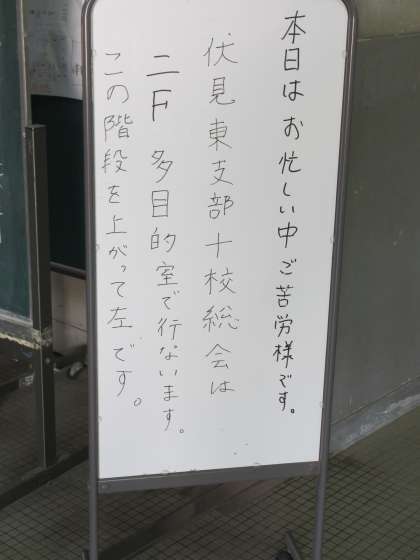 本日はお忙しい中ご苦労様です。
伏見東支部十校総会は
二F 多目的室で行ないます。
この階段を上がって左です。